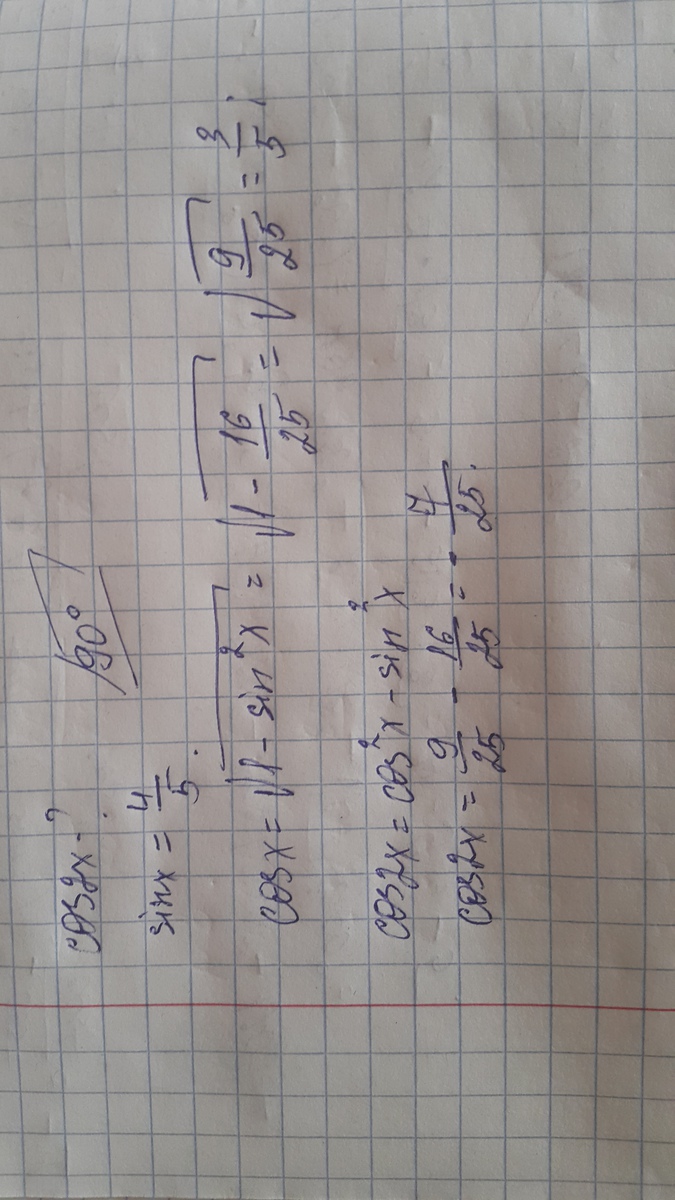 cos2x - ?
90°
sinx = 4/5.
cosx = √(1 - sin²x) = √(1 - 16/25) = √(9/25) = 3/5;
cos2x = cos²x - sin²x
cos2x = 9/25 - 16/25 = - 7/25.